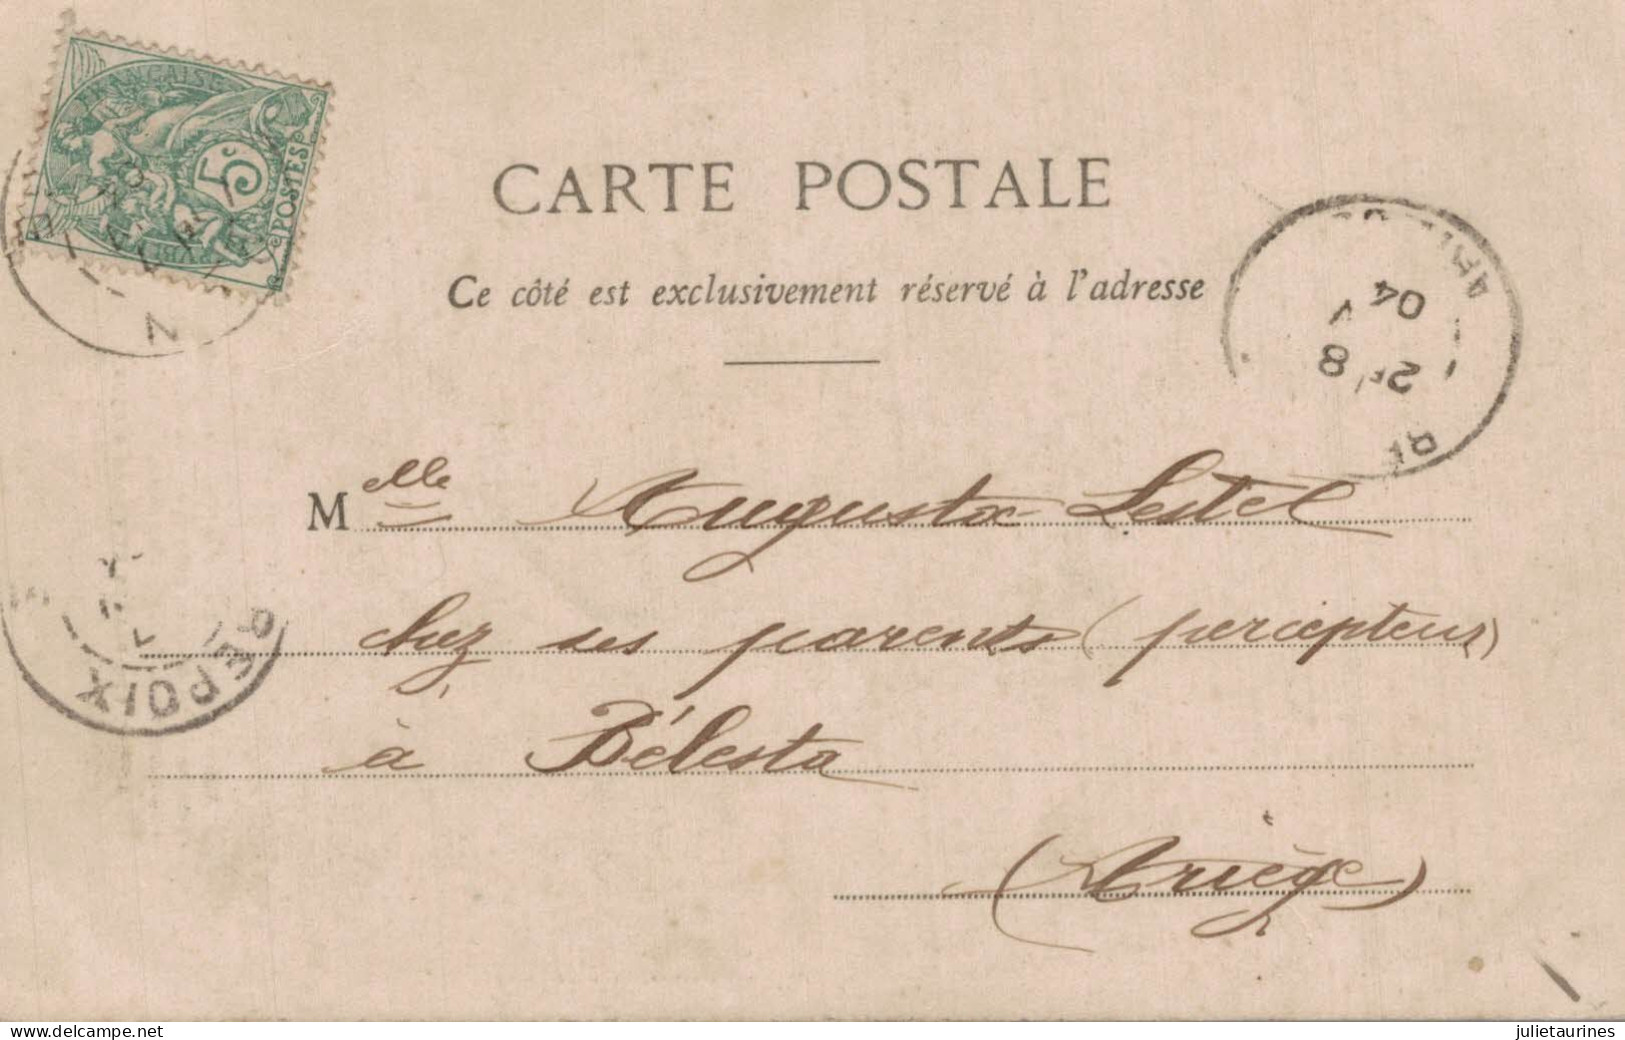 FRANÇAISE
5c
POSTES
CARTE POSTALE
Ce côté est exclusivement réservé à l'adresse
04
2e 8
Melle Augusta Lestel
chez ses parents (percepteur)
à Bélesta
(Ariège)
REPOIX
www.delcampe.net
julietaurines